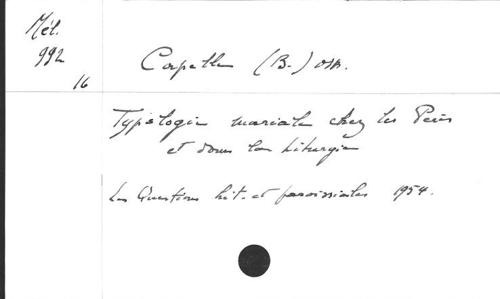 Mél.
992
16
Capelle (B.) OSB.
Typologie mariale chez les Pères
et dans la Liturgie
Les Questions lit. et paroissiales 1954.